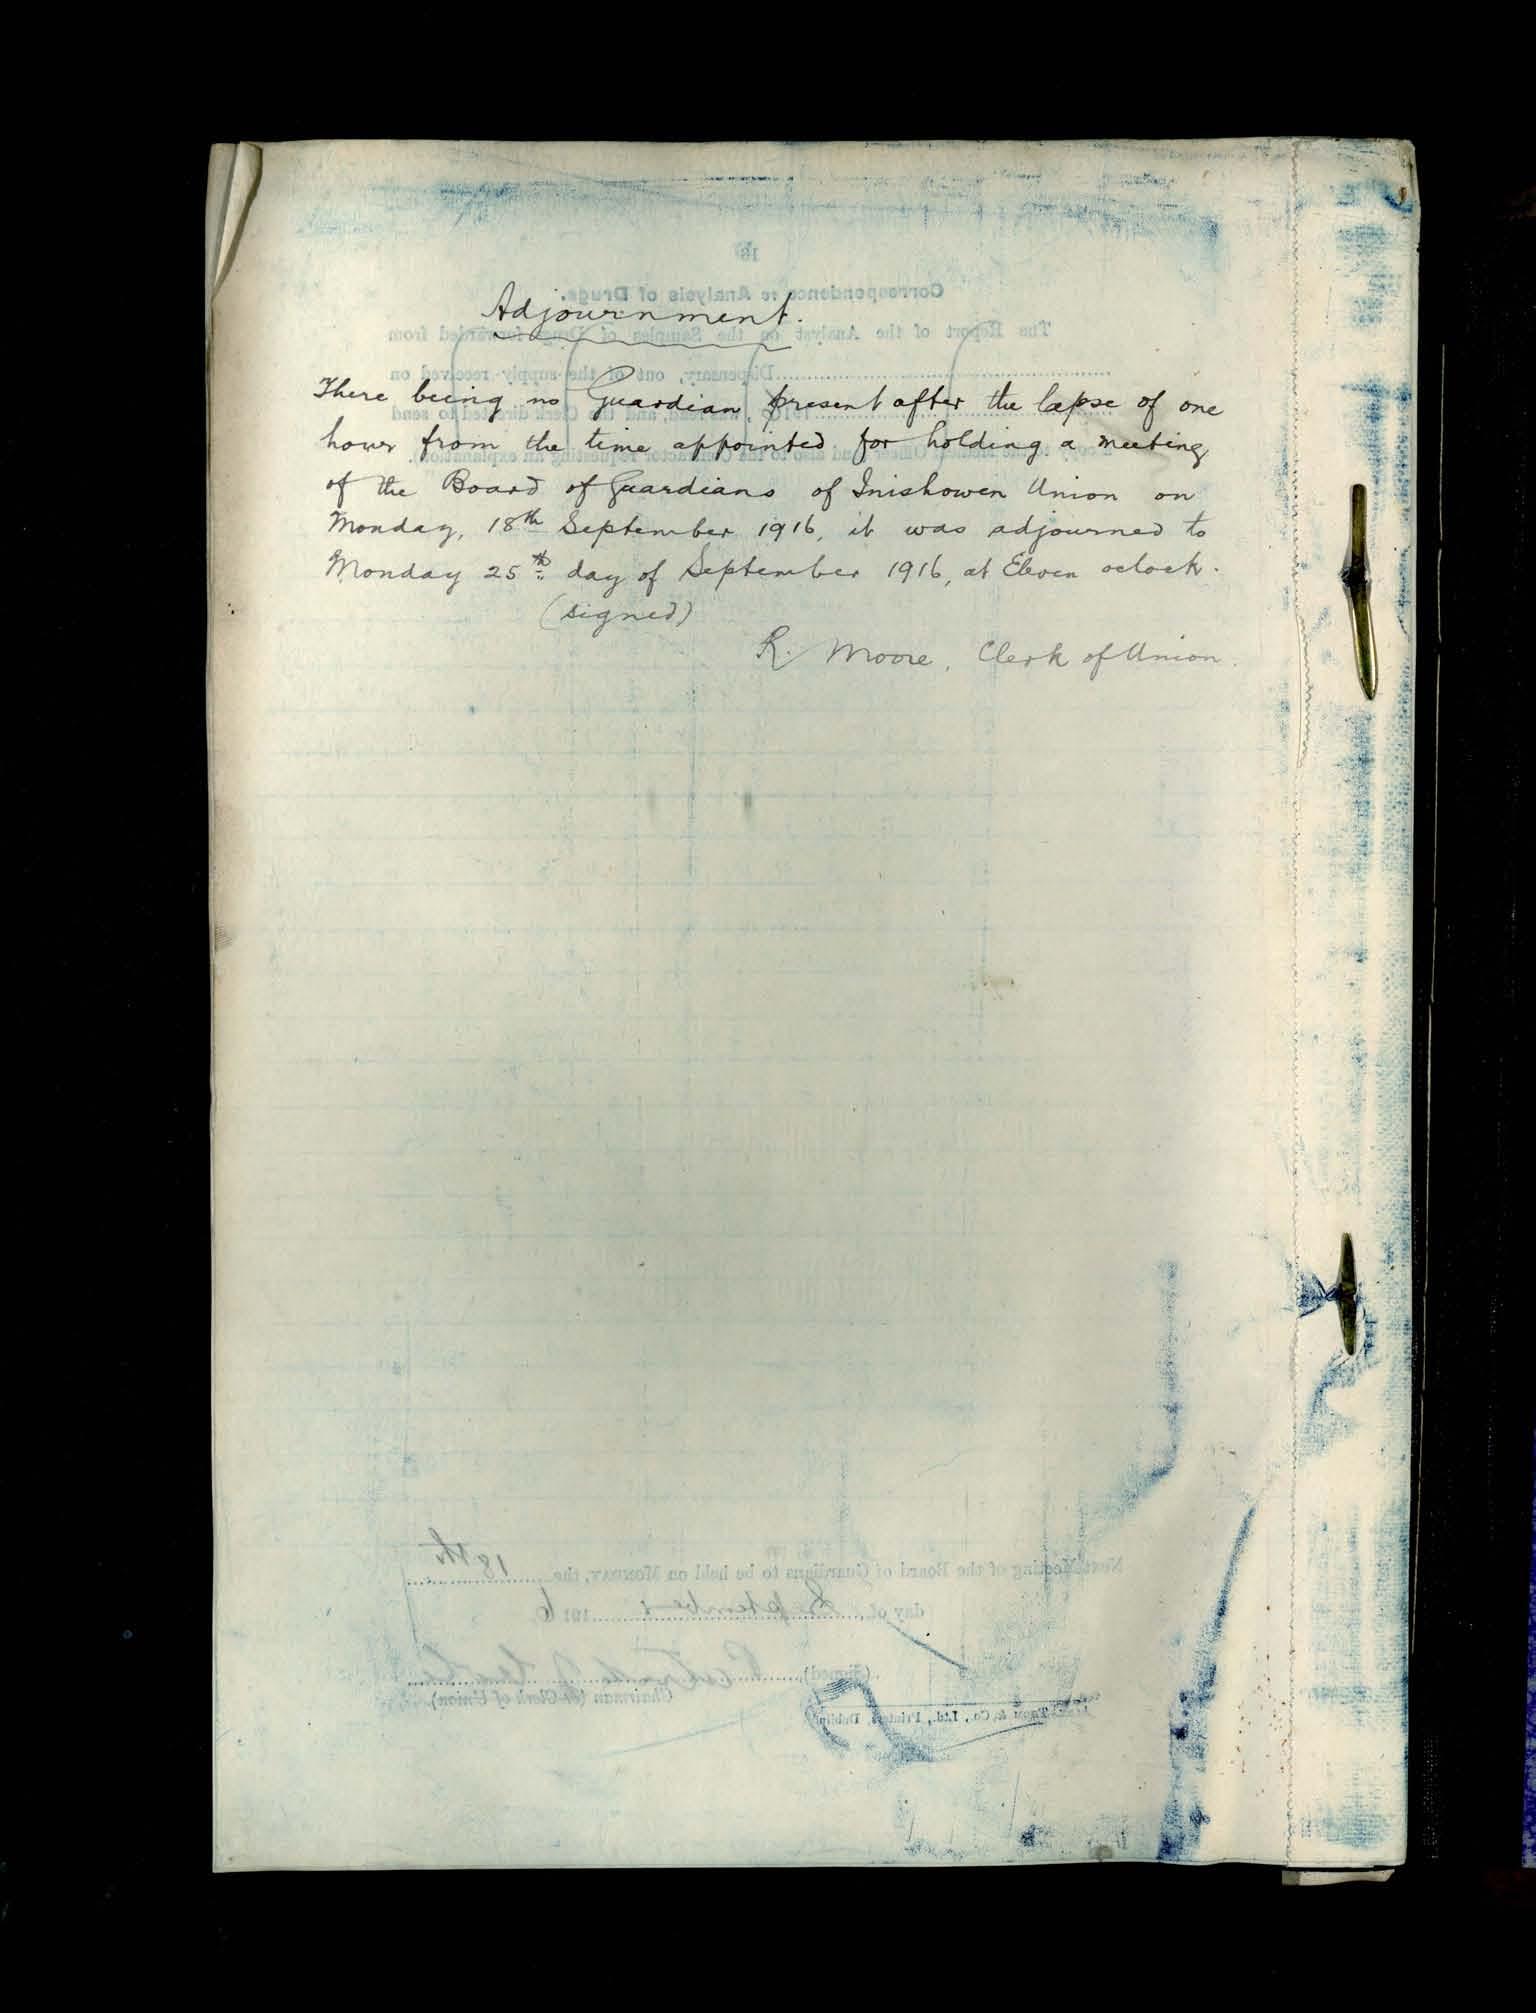 Adjournment.
There being no Guardian present after the lapse of one
hour from the time appointed for holding a meeting
of the Board of Guardians of Inishowen Union on
Monday, 18th September 1916, it was adjourned to
Monday 25th day of September 1916, at Eleven oclock.
(signed)
R. Moore, Clerk of Union.